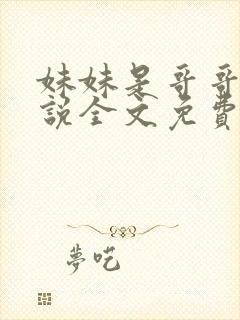 妹妹是哥哥
說全文免費
夢呓